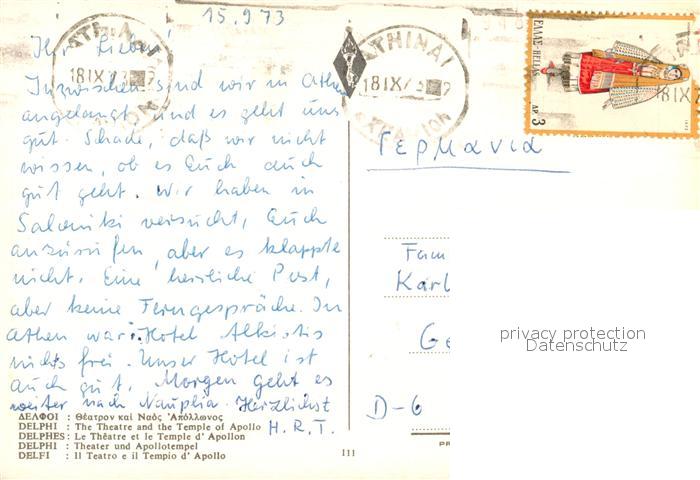 15.9.73
Ihr Lieben!
Inzwischen sind wir in Athen
angelangt und es geht uns
gut. Schade, daß wir nicht
wissen, ob es Euch auch
gut geht. Wir haben in
Saloniki versucht, Euch
anzurufen, aber es klappte
nicht. Eine herrliche Post,
aber keine Ferngespräche. In
Athen war Hotel Alkistis
nichts frei. Unser Hotel ist
auch gut. Morgen geht es
weiter nach Nauplia. Herzlichst
H. R. T.
ΔΕΛΦΟΙ : Θέατρον καὶ Ναὸς Ἀπόλλωνος
DELPHI : The Theatre and the Temple of Apollo
DELPHES : Le Théâtre et le Temple d' Apollon
DELPHI : Theater und Apollotempel
DELFI : Il Teatro e il Tempio d' Apollo
111
ATHINAI
18 IX 73
ATHINAI
18 IX 73
ΕΛΛΑΣ-HELLAS
ΔΡ 3
Γερμανία
Fam
Karl
Ge
D-6
privacy protection
Datenschutz